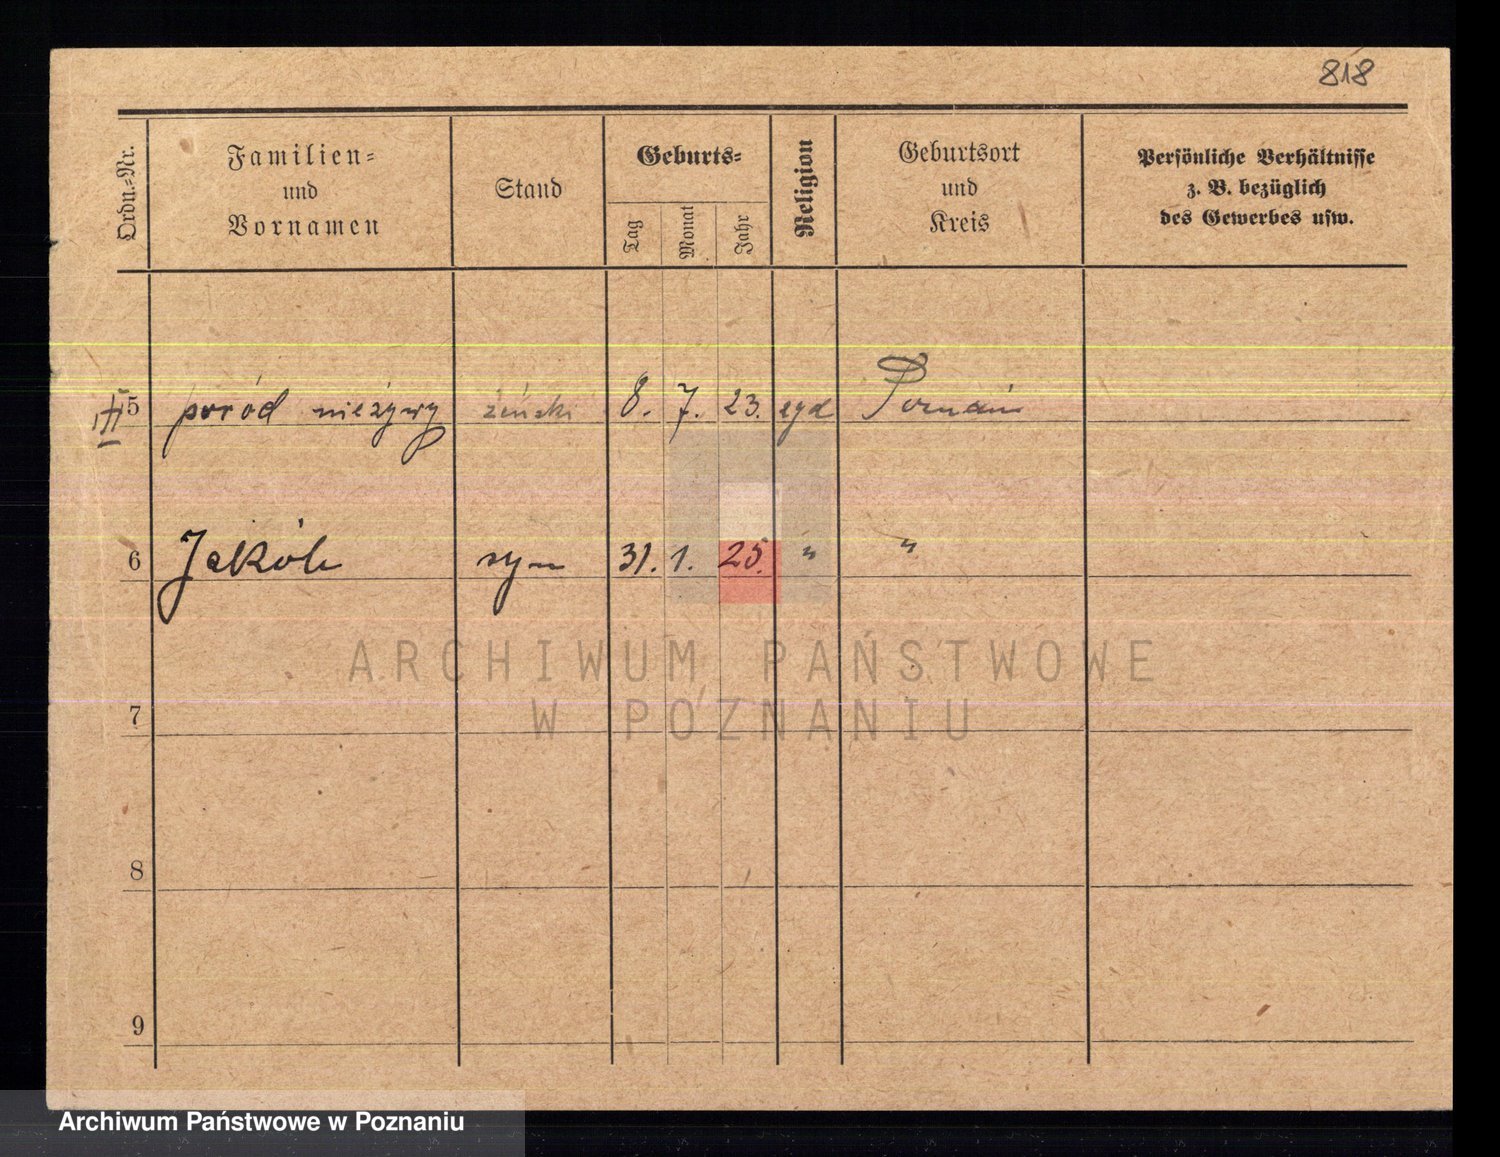 818
Ordn.-Nr.
Familien-
und
Vornamen
Stand
Geburts-
Tag
Monat
Jahr
Religion
Geburtsort
und
Kreis
Persönliche Verhältnisse
z. B. bezüglich
des Gewerbes usw.
5 poród nieżywy żeński 8. 7. 23. Poznań
6 Jakób syn 31. 1. 25. " "
ARCHIWUM PAŃSTWOWE
W POZNANIU
7
8
9
Archiwum Państwowe w Poznaniu